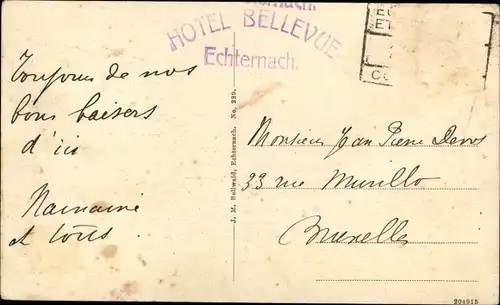 HOTEL BELLEVUE
Echternach.
Toujours de nos
bons baisers
d'ici
Mamaine
et tous
J. M. Bellwald, Echternach. No. 289.
Monsieur Jean Pierre Devos
33 rue Murillo
Bruxelles
204915